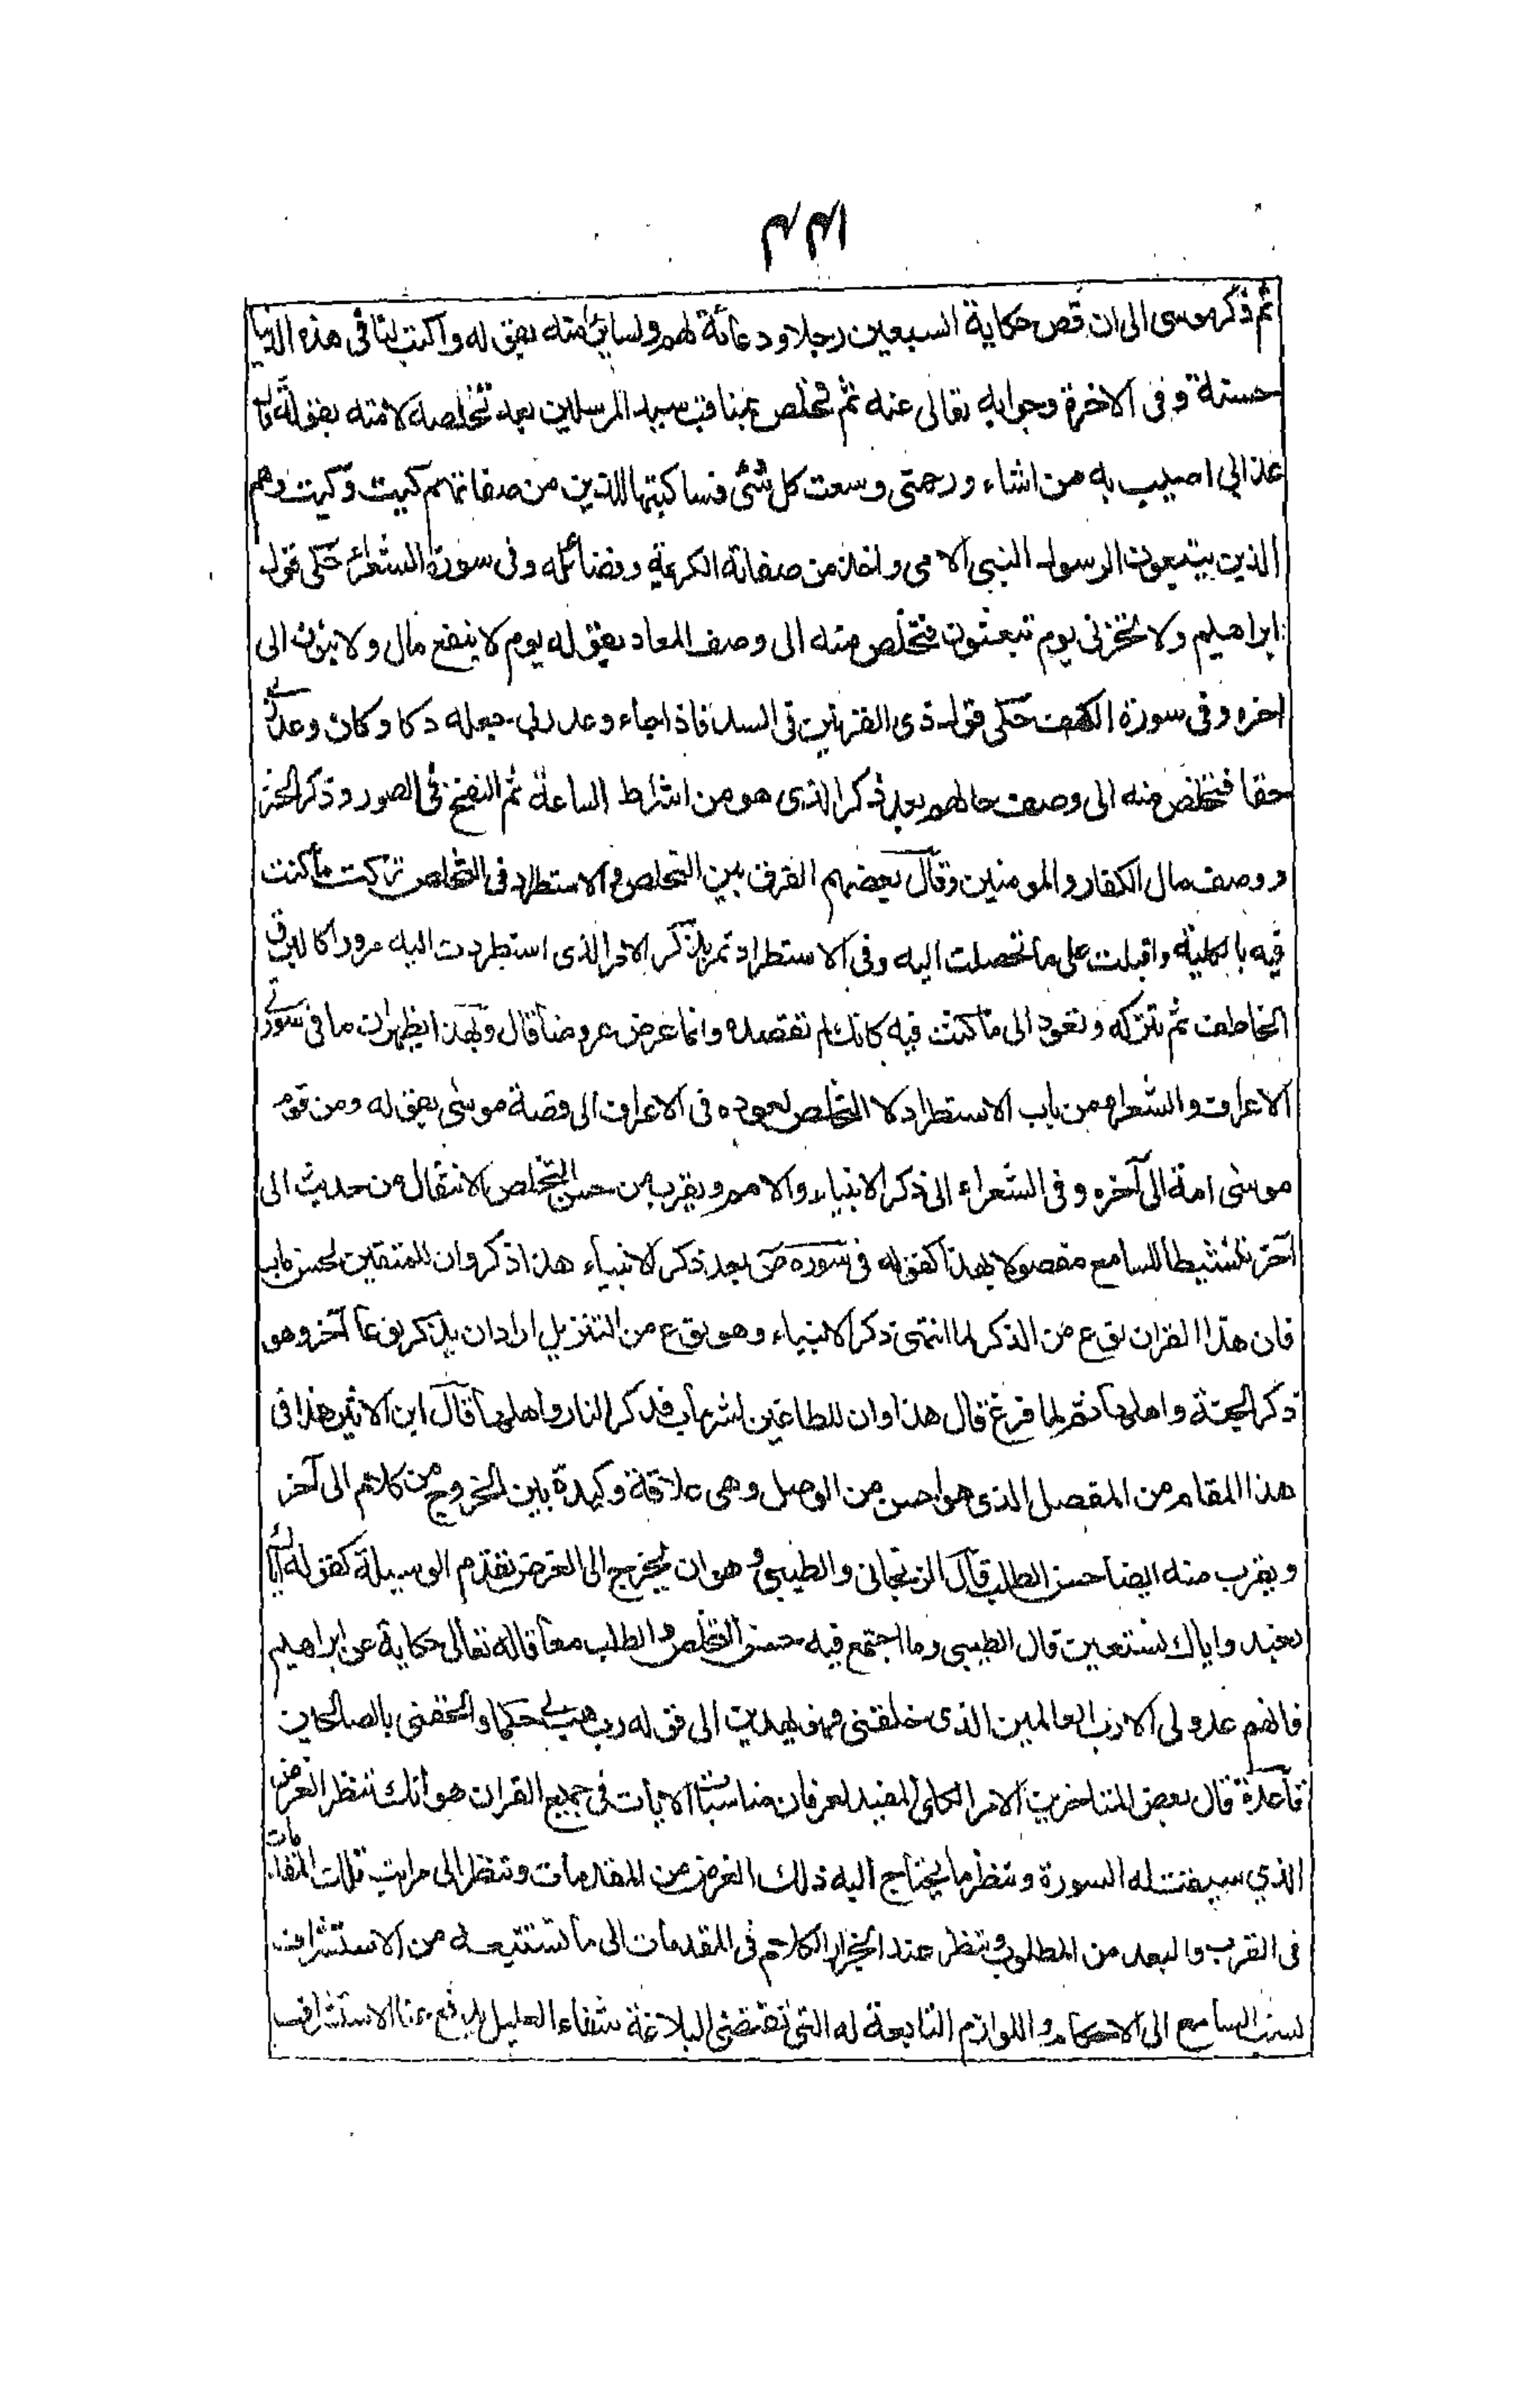 ٣٣١
ثم ذكر موسى الى ان قص حكاية السبعين رجلا ودعائه لهم ولسائر امته بقوله واكتب لنا فى هذه الدنيا
حسنة وفى الاخرة وجوابه تعالى عنه ثم تخلص بمناقب سيد المرسلين بعد تخلصه لامته بقوله قال
عذابى اصيب به من اشاء ورحمتى وسعت كل شئ فساكتبها للذين من صفاتهم كيت وكيت وهم
الذين يتبعون الرسول النبى الامى واخذ من صفاته الكريمة وفضائله وفى سورة الشعراء حكى قول
ابراهيم ولا تخزنى يوم يبعثون فتخلص منه الى وصف المعاد بقوله يوم لا ينفع مال ولا بنون الى
اخره وفى سورة الكهف حكى قول ذى القرنين فى السد فاذا جاء وعد ربى جعله دكا وكان وعد ربى
حقا فتخلص منه الى وصف حالهم بعد ذكر الذى هو من اشراط الساعة ثم النفخ فى الصور وذكر الحشر
ووصف مال الكفار والمومنين وقال بعضهم الفرق بين التخلص والاستطراد فى التخلص تركت ما كنت
فيه بالكلية واقبلت على ما تخلصت اليه وفى الاستطراد تمر بذكر الامر الذى استطردت اليه مرورا كالبرق
الخاطف ثم تتركه وتعود الى ما كنت فيه كانك لم تقصده وانما عرض عروضا قال وبهذا يظهر ان ما فى سورتى
الاعراف والشعراء من باب الاستطراد لا التخلص لعوده فى الاعراف الى قصة موسى بقوله ومن قوم
موسى امة الى آخره وفى الشعراء الى ذكر الانبياء والامم ويقرب من حسن التخلص الانتقال من حديث الى
آخر تنشيطا للسامع مفصولا بهذا كقوله فى سورة ص بعد ذكر الانبياء هذا ذكر وان للمتقين لحسن ماب
فان هذا القران نوع من الذكر لما انتهى ذكر الانبياء وهو نوع من التنزيل اراد ان يذكر نوعا آخر وهو
ذكر الجنة واهلها ثم لما فرغ قال هذا وان للطاغين لشر ماب فذكر النار واهلها قال ابن الاثير هذا فى
هذا المقام من الفصل الذى هو احسن من الوصل وهى علاقة وكيدة بين الخروج من كلام الى آخر
ويقرب منه ايضا حسن الطلب قال الزنجانى والطيبى وهو ان يخرج الى الغرض بتقدم الوسيلة كقوله اياك
نعبد واياك نستعين قال الطيبى وما اجتمع فيه حسن التخلص والطلب معا قاله تعالى حكاية عن ابراهيم
فانهم عدو لى الا رب العالمين الذى خلقنى فهو يهدين الى قوله رب هب لى حكما والحقنى بالصالحين
قاعدة قال بعض المتاخرين الامر الكلى المفيد لعرفان مناسبات الايات فى جميع القران هو انك تنظر الغرض
الذي سيقت له السورة وتنظر ما يحتاج اليه ذلك الغرض من المقدمات وتنظر الى مراتب تلك المقدمات
فى القرب والبعد من المطلوب وتنظر عند انجرار الكلام فى المقدمات الى ما تستتبعه من الاستشراف
لنفس السامع الى الاحكام واللوازم التابعة له التى تقتضى البلاغة شفاء العليل بدفع عنا الاستشراف